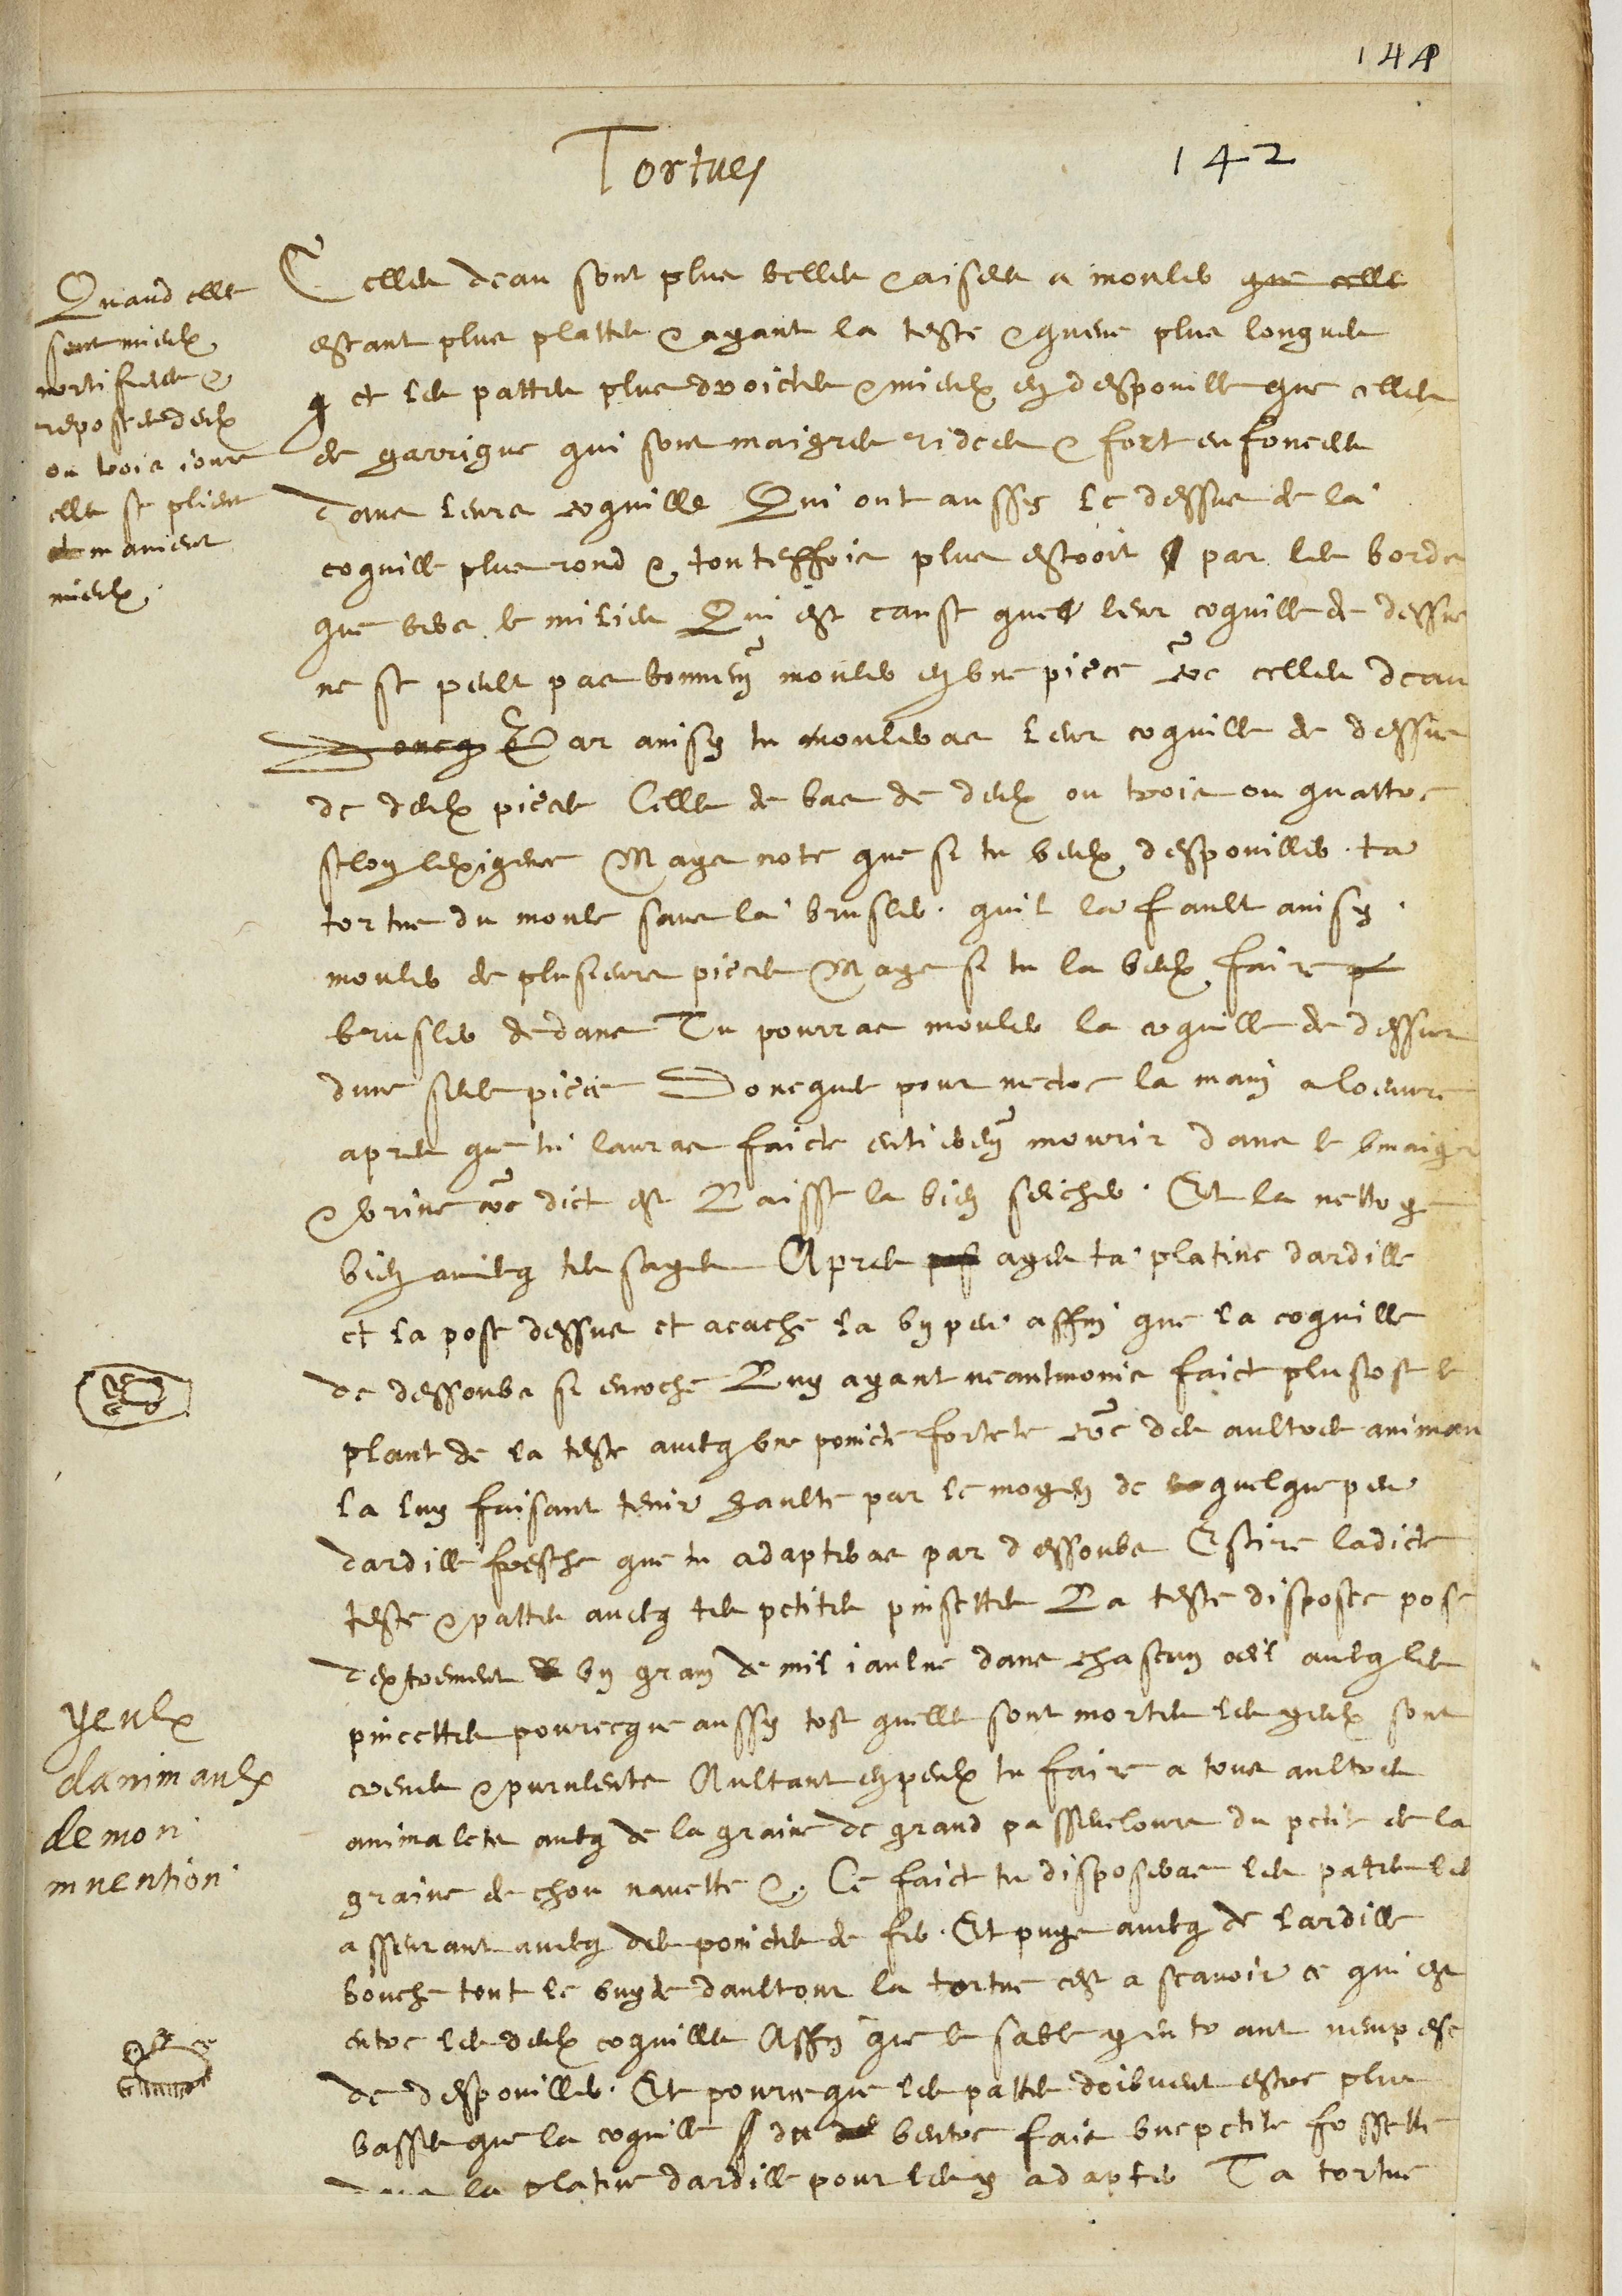 144
Tortues
142
Celles deau sont plus belles & aisees a mouler que celle
estant plus plattes & ayant la teste & queue plus longues
q et les pattes plus droictes & mieulx en despouille que celles
de garrigue qui sont maigres ridees & fort enfoncees
dans leurs coquilles Qui ont aussy le dessus de la
coquille plus rond & touteffois plus estroit par les bords
que vers le milieu Qui est cause que leur coquille de dessus
ne se peult pas bonnem mouler en une piece co{m}e celles deau
Doncq Car ainsy tu mouleras leur coquille de dessus
de deulx pieces Celle de bas de deulx ou trois ou quattre
selon lexigence Mays note que si tu veulx despouiller ta
tortue du moule sans la brusler quil la fault ainsy
mouler de plusieurs pieces Mays si tu la veulx faire
brusler dedans Tu pourras mouler la coquille de dessus
dune seule piece Doncques pour mectre la main a loeuvre
apres que tu lauras faicte entierem mourir dans le vinaigre
& urine co{m}e dict est Laisse la bien seicher Et la nettoye
bien aveq tes soyes Apres ayes ta platine dardille
et la pose dessus et acache la un peu affin que la coquille
de dessoubs si encoche Luy ayant neantmoins faict plustost le
plant de la teste aveq une poincte fortete co{m}e des aultres animau
la luy faisant tenir haulte par le moyen de quelque peu
dardille fresche que tu adapteras par dessoubs Estire ladicte
teste & pattes aveq tes petites pinsettes La teste disposee pose
dextrement un grain de mil iaulne dans chascun oeil aveq les
pincettes pourceque aussy tost quelles sont mortes les yeulx sont
creues & purulents Aultant en peulx tu faire a tous aultres
animalets aveq de la graine de grand passevelours du petit de la
graine de chou navette &c Ce faict tu disposeras les pattes les
asseurant aveq des poinctes de fer Et puys aveq de lardille
bouche tout le vuyde daultour la tortue cest a scavoir ce qui est
entre les deulx coquilles Affin que le sable y entrant nempesc
de despouiller Et pource que les pattes doibvent estre plus
basses que la coquille du ventre fais une petite fossette
dans la platine dardille pour les y adapter Ta tortue
Quand elles
sont mieulx
mortifiees &
reposees deulx
ou trois iours
elles se plient
et manient
mieulx
yeulx
danimaulx
de mon
invention